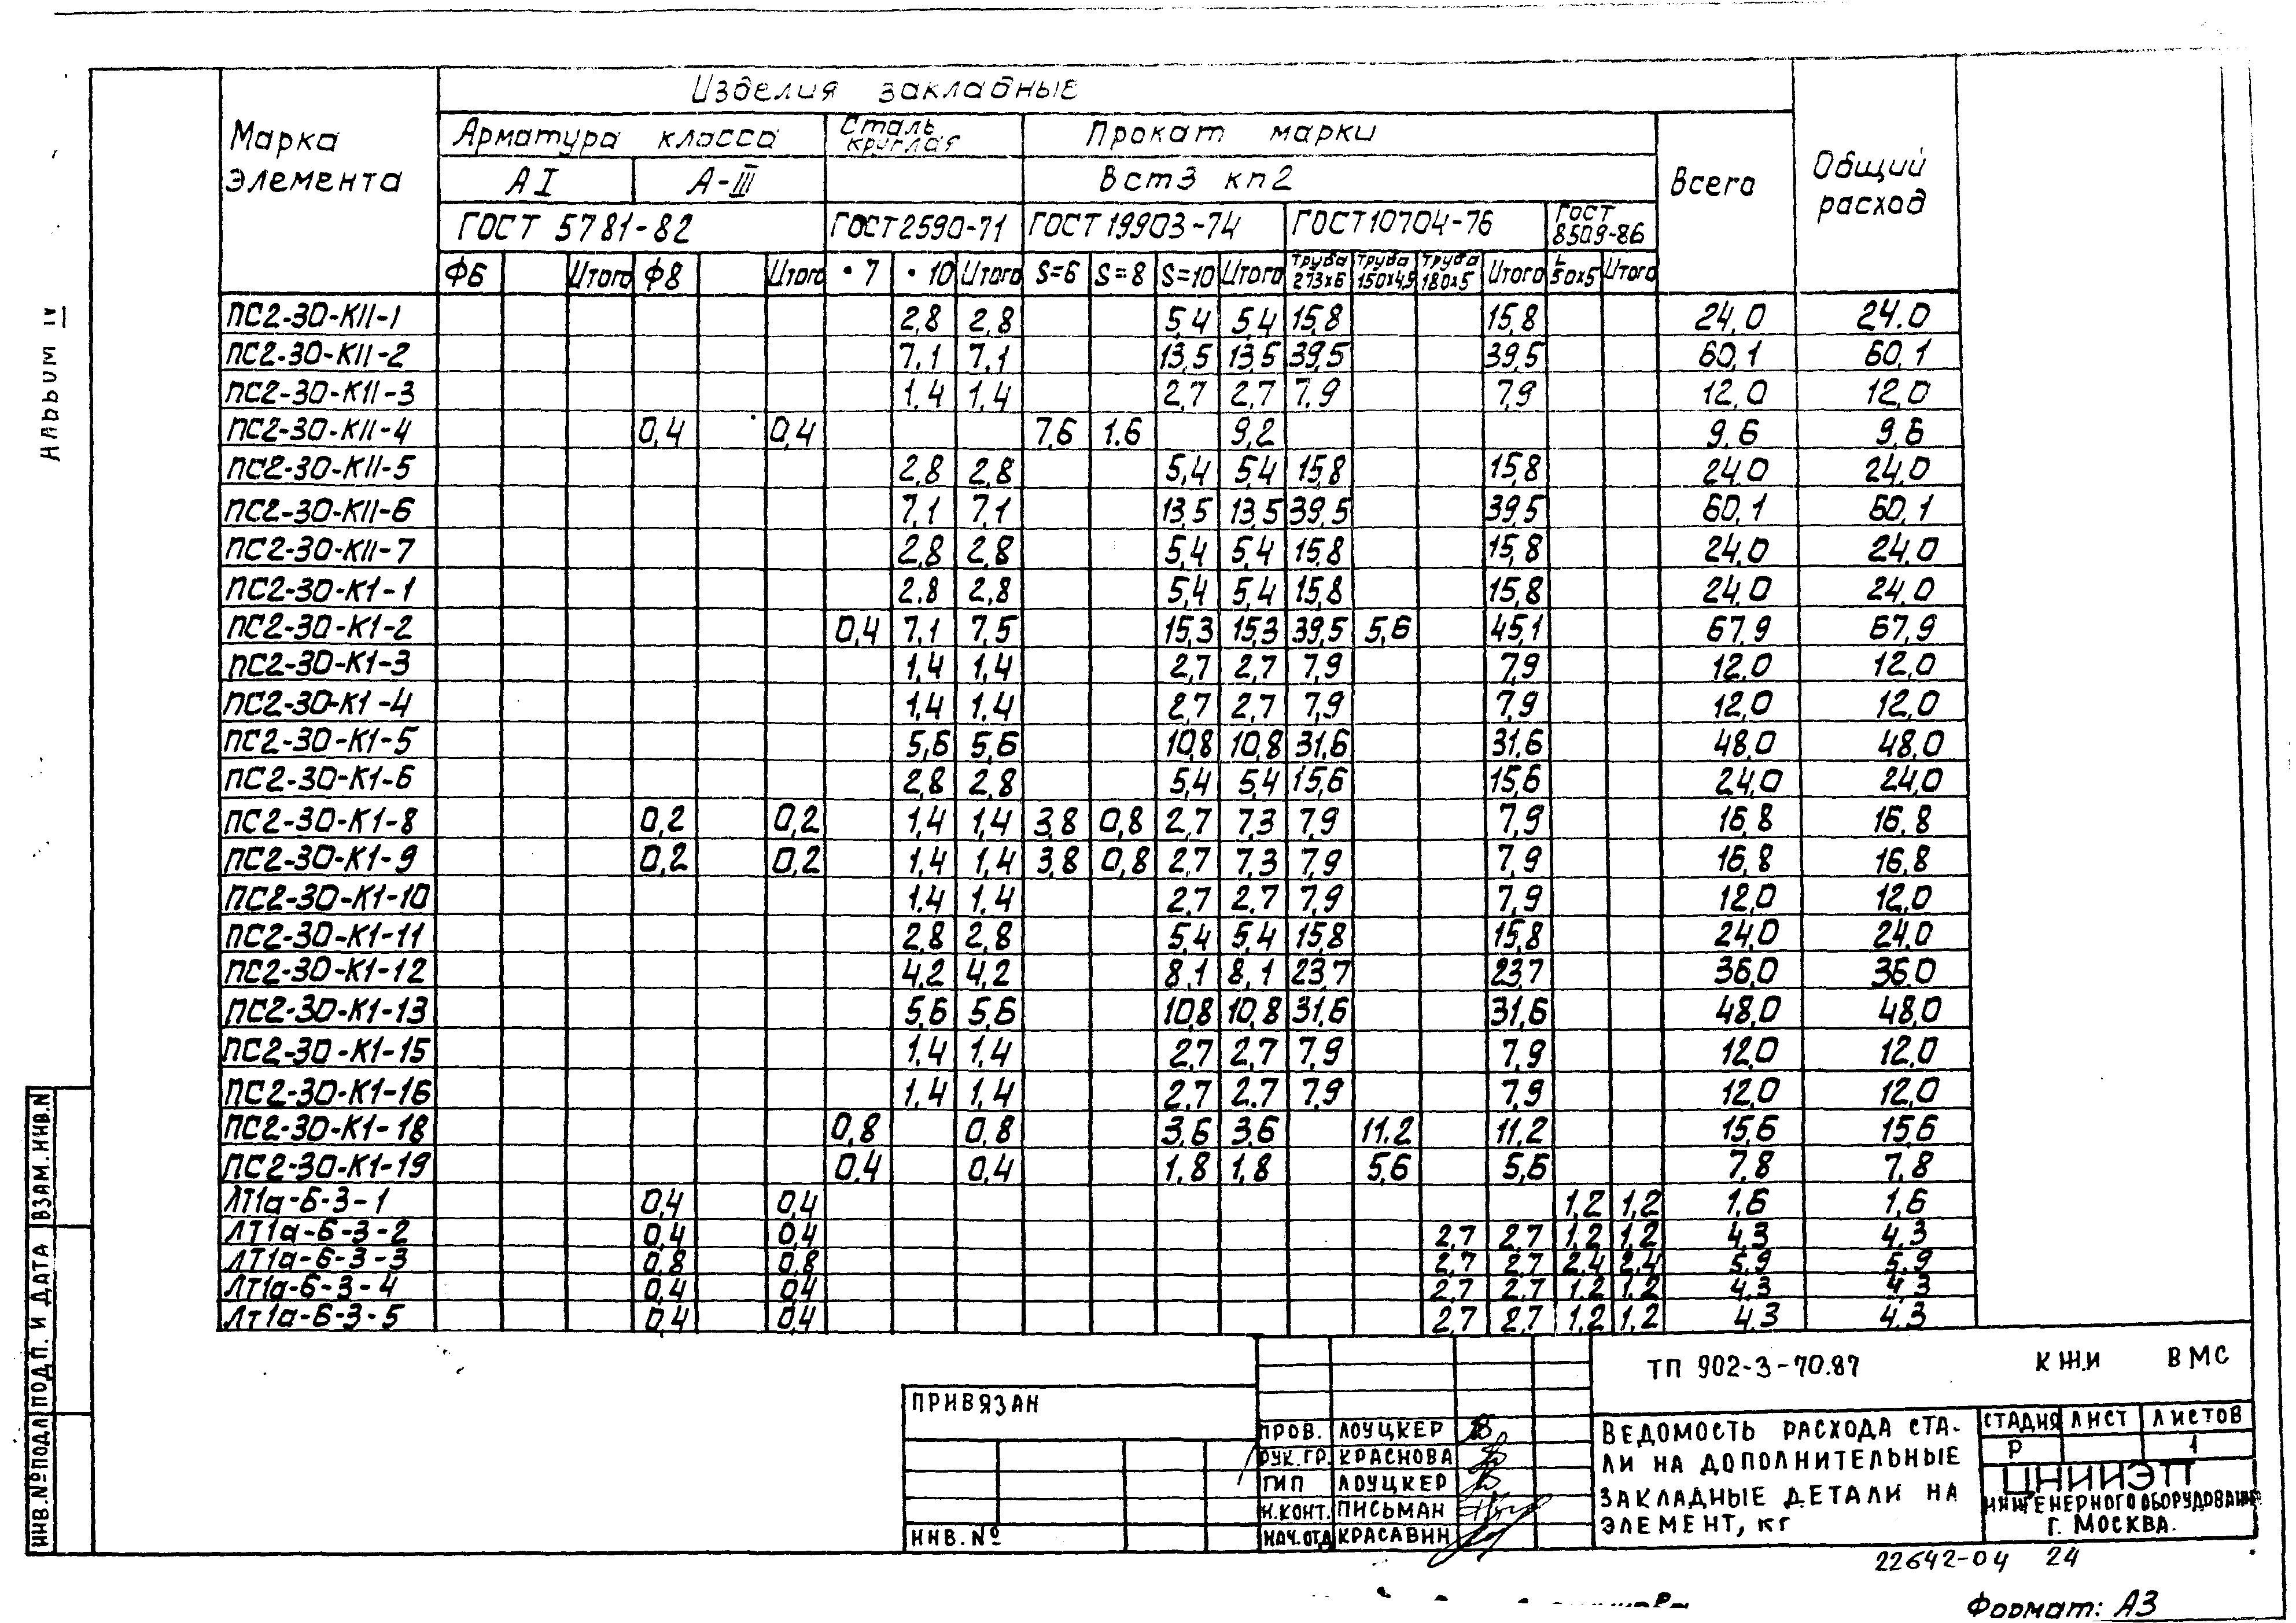 Изделия закладные
Марка элемента
Арматура класса
Сталь круглая
Прокат марки
Всего
Общий расход
АI А-III
Вст3 кп2
ГОСТ 5781-82 ГОСТ 2590-71 ГОСТ 19903-74 ГОСТ 10704-76 ГОСТ 8509-86
Ф6 Итого Ф8 Итого • 7 • 10 Итого S=6 S=8 S=10 Итого Труба 273х6 Труба 150х4,5 Труба 180х5 Итого L 50х5 Итого
ПС2-30-КII-1 2,8 2,8 5,4 5,4 15,8 15,8 24,0 24.0
ПС2-30-КII-2 7,1 7,1 13,5 13,5 39,5 39,5 60,1 60,1
ПС2-30-КII-3 1,4 1,4 2,7 2,7 7,9 7,9 12,0 12,0
ПС2-30-КII-4 0,4 0,4 7,6 1.6 9,2 9,6 9,6
ПС2-30-КII-5 2,8 2,8 5,4 5,4 15,8 15,8 24,0 24,0
ПС2-30-КII-6 7,1 7,1 13,5 13,5 39,5 39,5 60,1 60,1
ПС2-30-КII-7 2,8 2,8 5,4 5,4 15,8 15,8 24,0 24,0
ПС2-30-К1-1 2,8 2,8 5,4 5,4 15,8 15,8 24,0 24,0
ПС2-30-К1-2 0,4 7,1 7,5 15,3 15,3 39,5 5,6 45,1 67,9 67,9
ПС2-30-К1-3 1,4 1,4 2,7 2,7 7,9 7,9 12,0 12,0
ПС2-30-К1-4 1,4 1,4 2,7 2,7 7,9 7,9 12,0 12,0
ПС2-30-К1-5 5,6 5,6 10,8 10,8 31,6 31,6 48,0 48,0
ПС2-30-К1-6 2,8 2,8 5,4 5,4 15,6 15,6 24,0 24,0
ПС2-30-К1-8 0,2 0,2 1,4 1,4 3,8 0,8 2,7 7,3 7,9 7,9 16,8 16,8
ПС2-30-К1-9 0,2 0,2 1,4 1,4 3,8 0,8 2,7 7,3 7,9 7,9 16,8 16,8
ПС2-30-К1-10 1,4 1,4 2,7 2,7 7,9 7,9 12,0 12,0
ПС2-30-К1-11 2,8 2,8 5,4 5,4 15,8 15,8 24,0 24,0
ПС2-30-К1-12 4,2 4,2 8,1 8,1 23,7 23,7 36,0 36,0
ПС2-30-К1-13 5,6 5,6 10,8 10,8 31,6 31,6 48,0 48,0
ПС2-30-К1-15 1,4 1,4 2,7 2,7 7,9 7,9 12,0 12,0
ПС2-30-К1-16 1,4 1,4 2,7 2,7 7,9 7,9 12,0 12,0
ПС2-30-К1-18 0,8 0,8 3,6 3,6 11,2 11,2 15,6 15,6
ПС2-30-К1-19 0,4 0,4 1,8 1,8 5,6 5,6 7,8 7,8
ЛТ1а-6-3-1 0,4 0,4 1,2 1,2 1,6 1,6
ЛТ1а-6-3-2 0,4 0,4 2,7 2,7 1,2 1,2 4,3 4,3
ЛТ1а-6-3-3 0,8 0,8 2,7 2,7 2,4 2,4 5,9 5,9
ЛТ1а-6-3-4 0,4 0,4 2,7 2,7 1,2 1,2 4,3 4,3
ЛТ1а-6-3-5 0,4 0,4 2,7 2,7 1,2 1,2 4,3 4,3
Альбом IV
ВЗАМ.ИНВ.N
ПОДП. И ДАТА
ИНВ.№ПОДЛ
ПРИВЯЗАН
ИНВ.№
ПРОВ. ЛОУЦКЕР
РУК.ГР. КРАСНОВА
ГИП ЛОУЦКЕР
Н.КОНТ. ПИСЬМАН
НАЧ.ОТД КРАСАВИН
ТП 902-3-70.87 КЖ.И ВМС
ВЕДОМОСТЬ РАСХОДА СТА-
ЛИ НА ДОПОЛНИТЕЛЬНЫЕ
ЗАКЛАДНЫЕ ДЕТАЛИ НА
ЭЛЕМЕНТ, кг
СТАДИЯ ЛИСТ ЛИСТОВ
Р 1
ЦНИИЭП
ИНЖЕНЕРНОГО ОБОРУДОВАНИЯ
Г. МОСКВА.
22642-04 24
Формат: А3